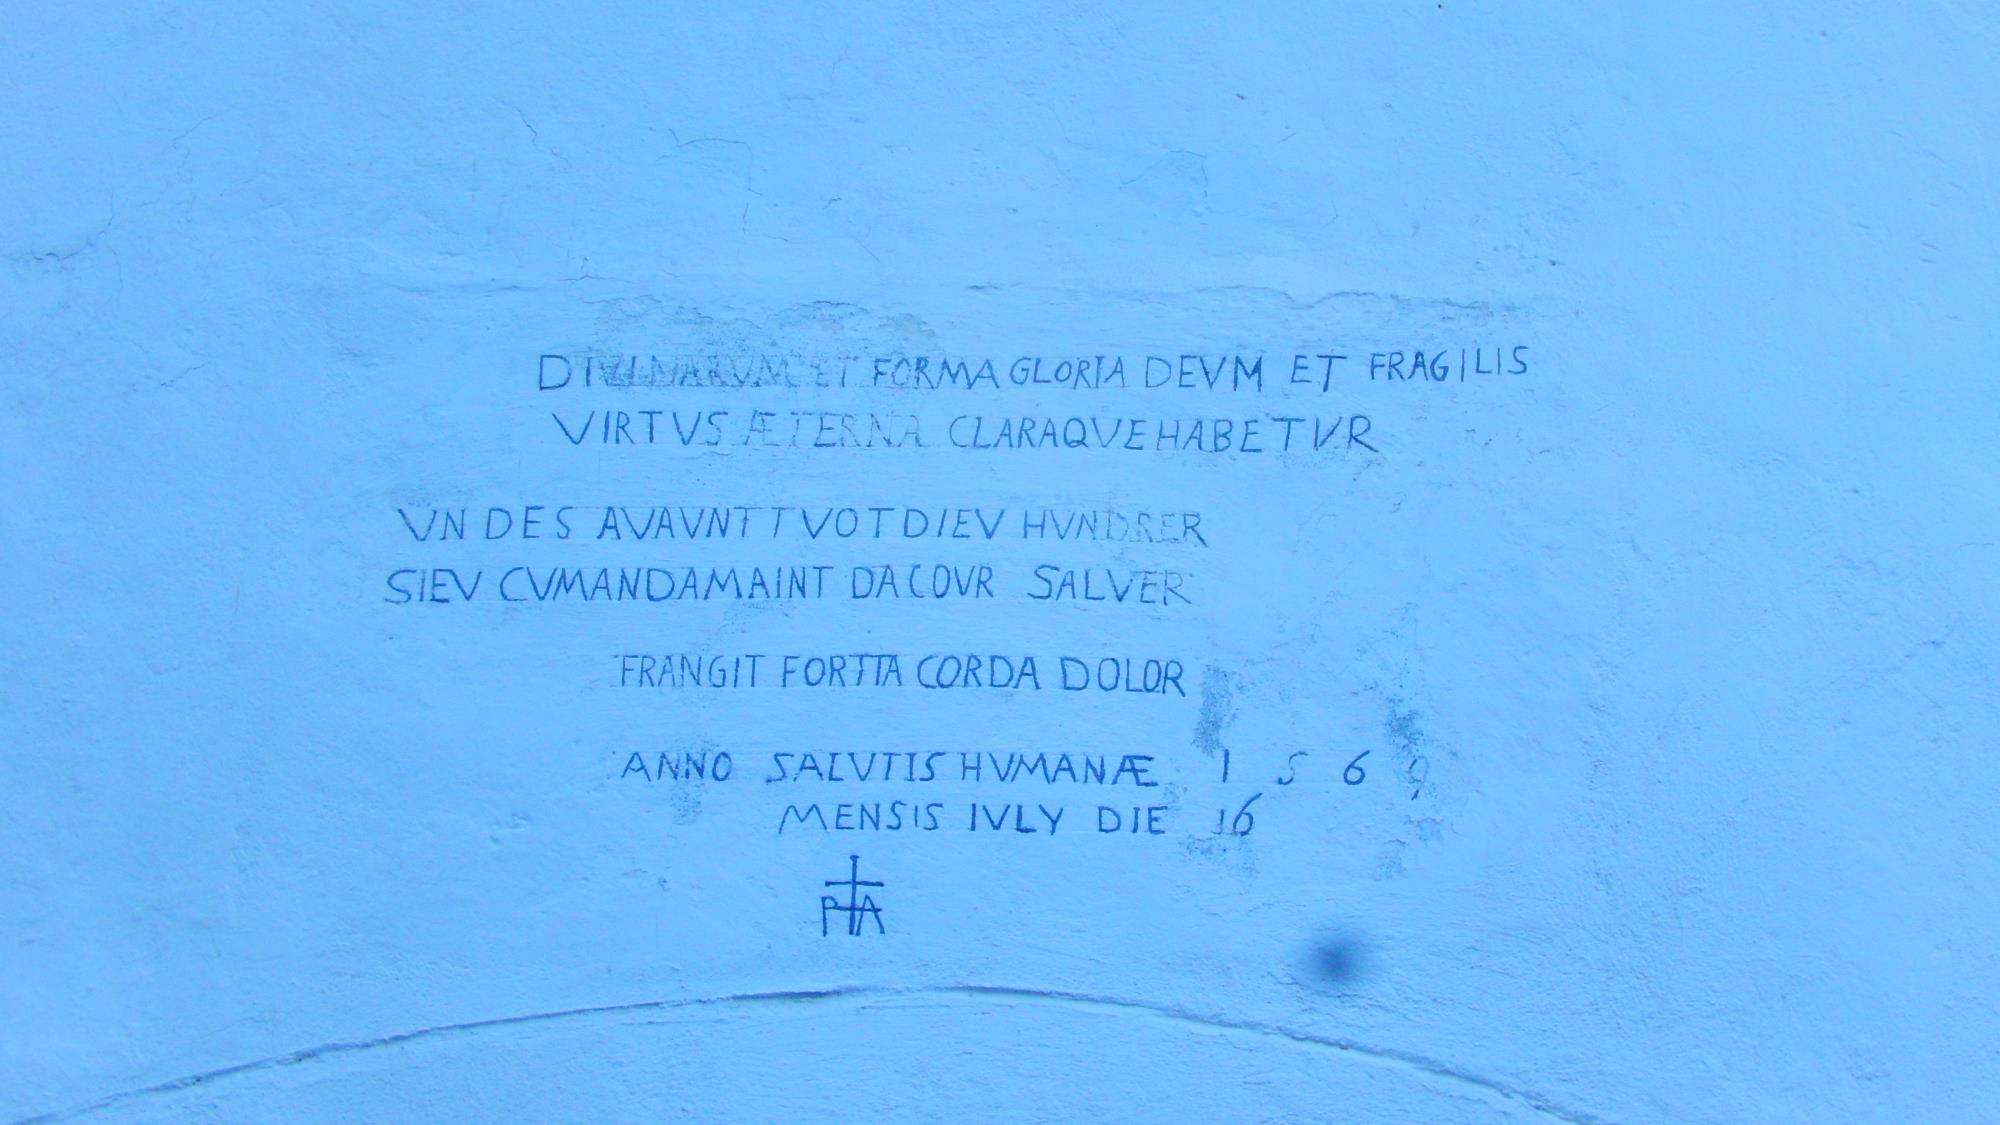 DIVINARUM ET FORMA GLORIA DEVM ET FRAGILIS
VIRTVS ÆTERNA CLARAQVE HABETVR
VN DES AVAVNT TVOT DIEV HVNDRER
SIEV CVMANDAMAINT DA COVR SALVER
FRANGIT FORTIA CORDA DOLOR
ANNO SALVTIS HVMANÆ 1 5 6 9
MENSIS IVLY DIE 16
PA